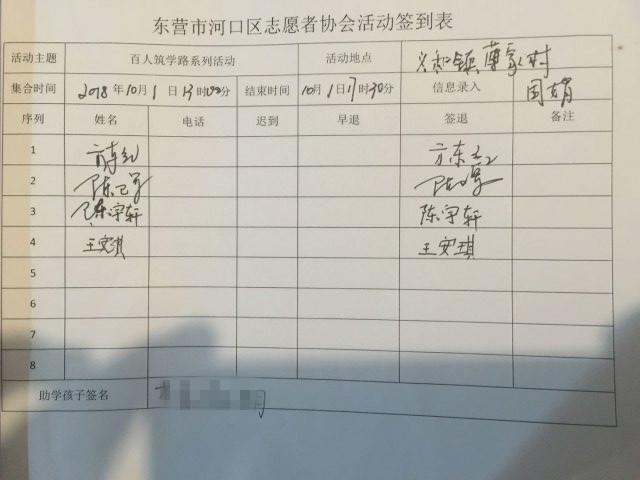 东营市河口区志愿者协会活动签到表
活动主题 百人筑学路系列活动 活动地点 义和镇薄家村
集合时间 2018年10月1日13时00分 结束时间 10月1日17时30分 信息录入 周娟
序列 姓名 电话 迟到 早退 签退 备注
1
2
3 陈宇轩 陈宇轩
4 王安琪 王安琪
5
6
7
8
助学孩子签名